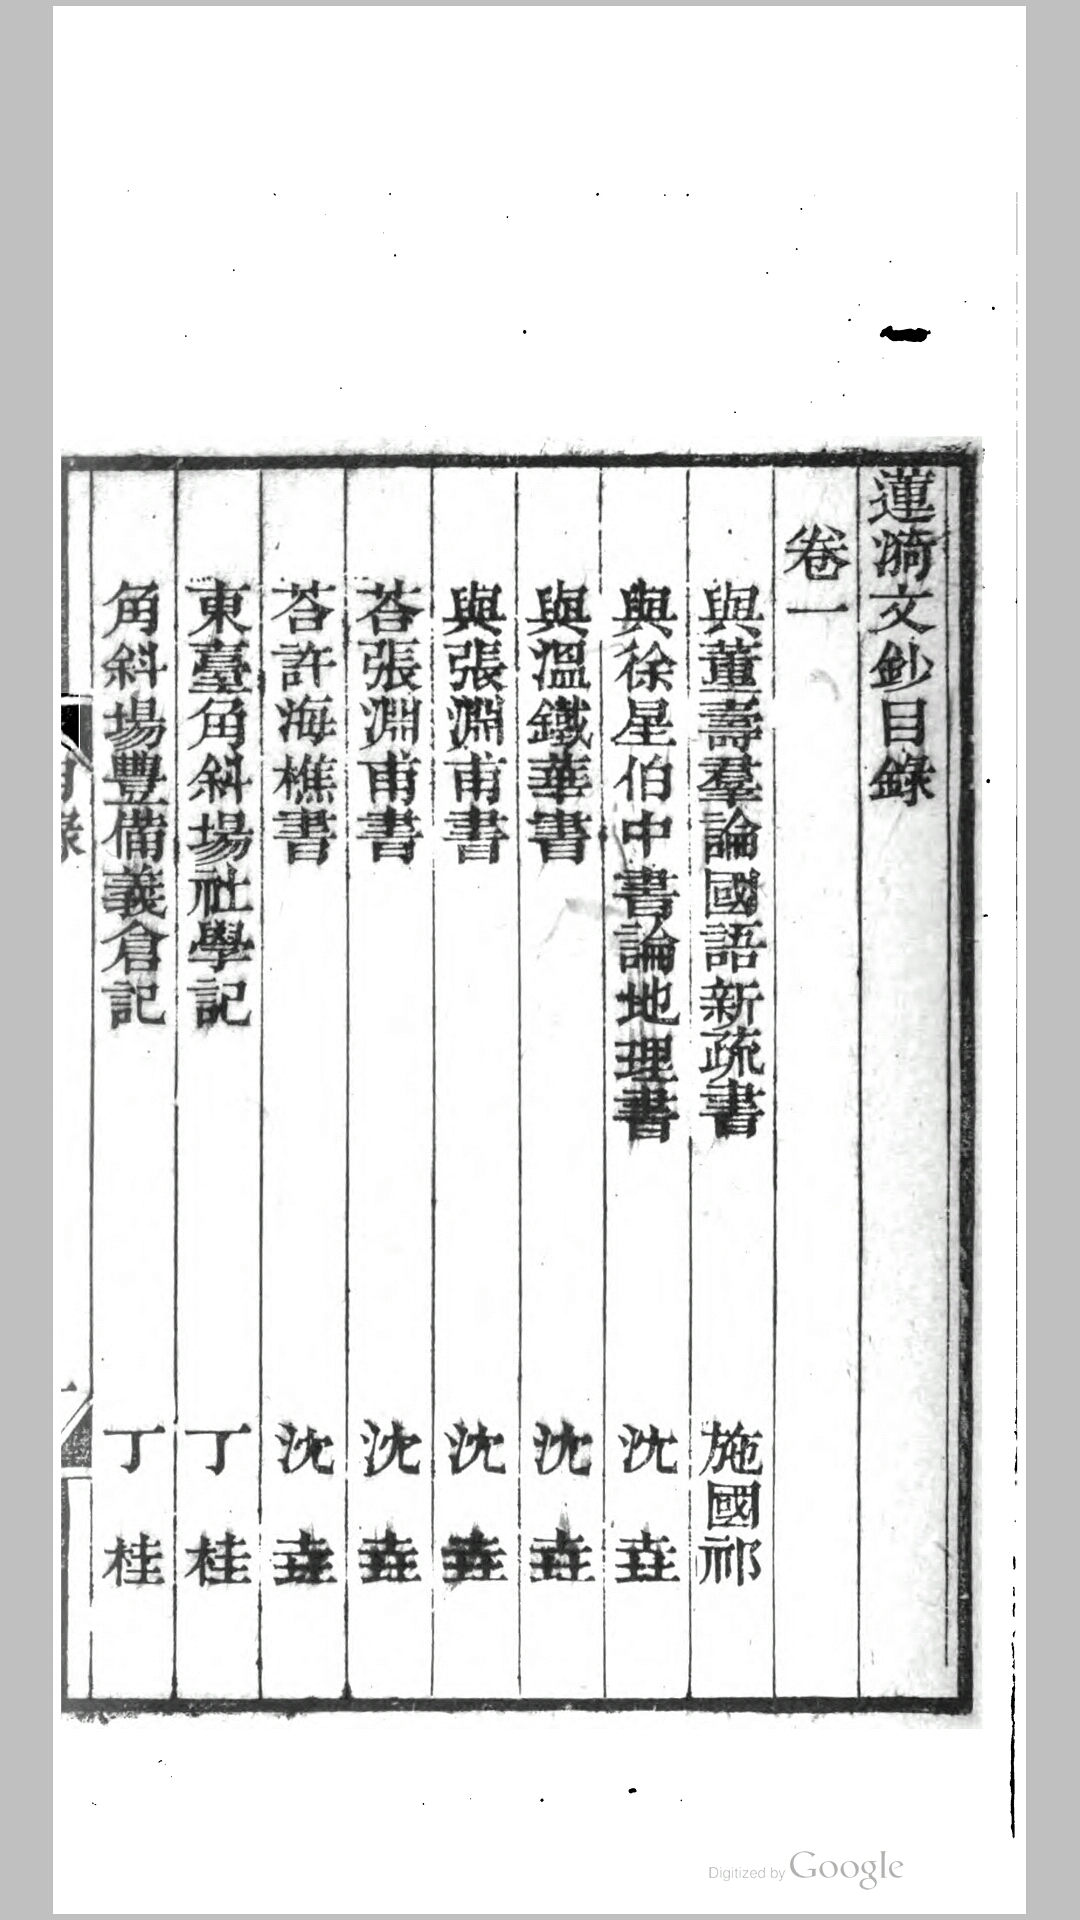 蓮漪文鈔目錄
卷一
與董壽羣論國語新疏書 施國祁
與徐星伯中書論地理書 沈垚
與溫鐵華書 沈垚
與張淵甫書 沈垚
荅張淵甫書 沈垚
荅許海樵書 沈垚
東臺角斜場社學記 丁桂
角斜場豐備義倉記 丁桂
Digitized by Google